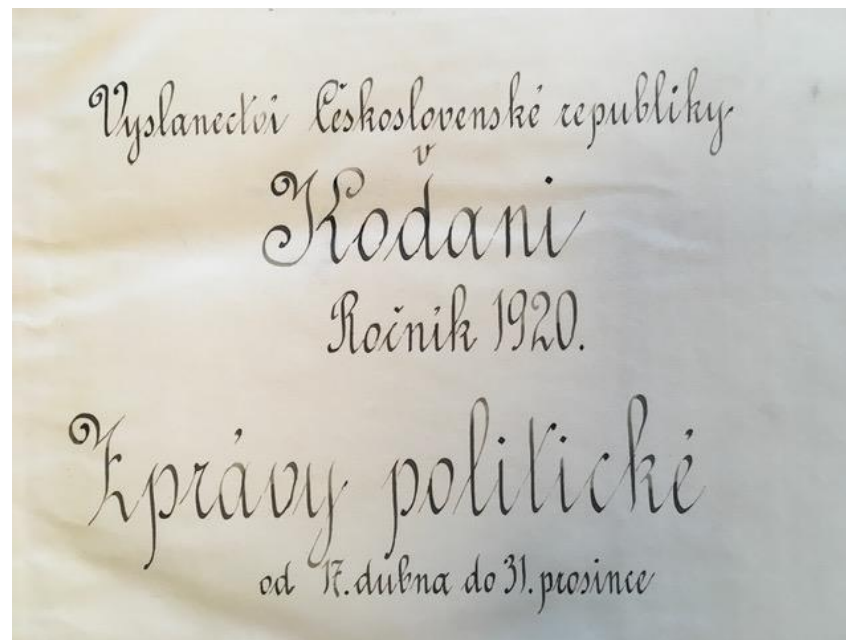 Vyslanectví Československé republiky
v
Kodani
Ročník 1920.
Zprávy politické
od 17. dubna do 31. prosince